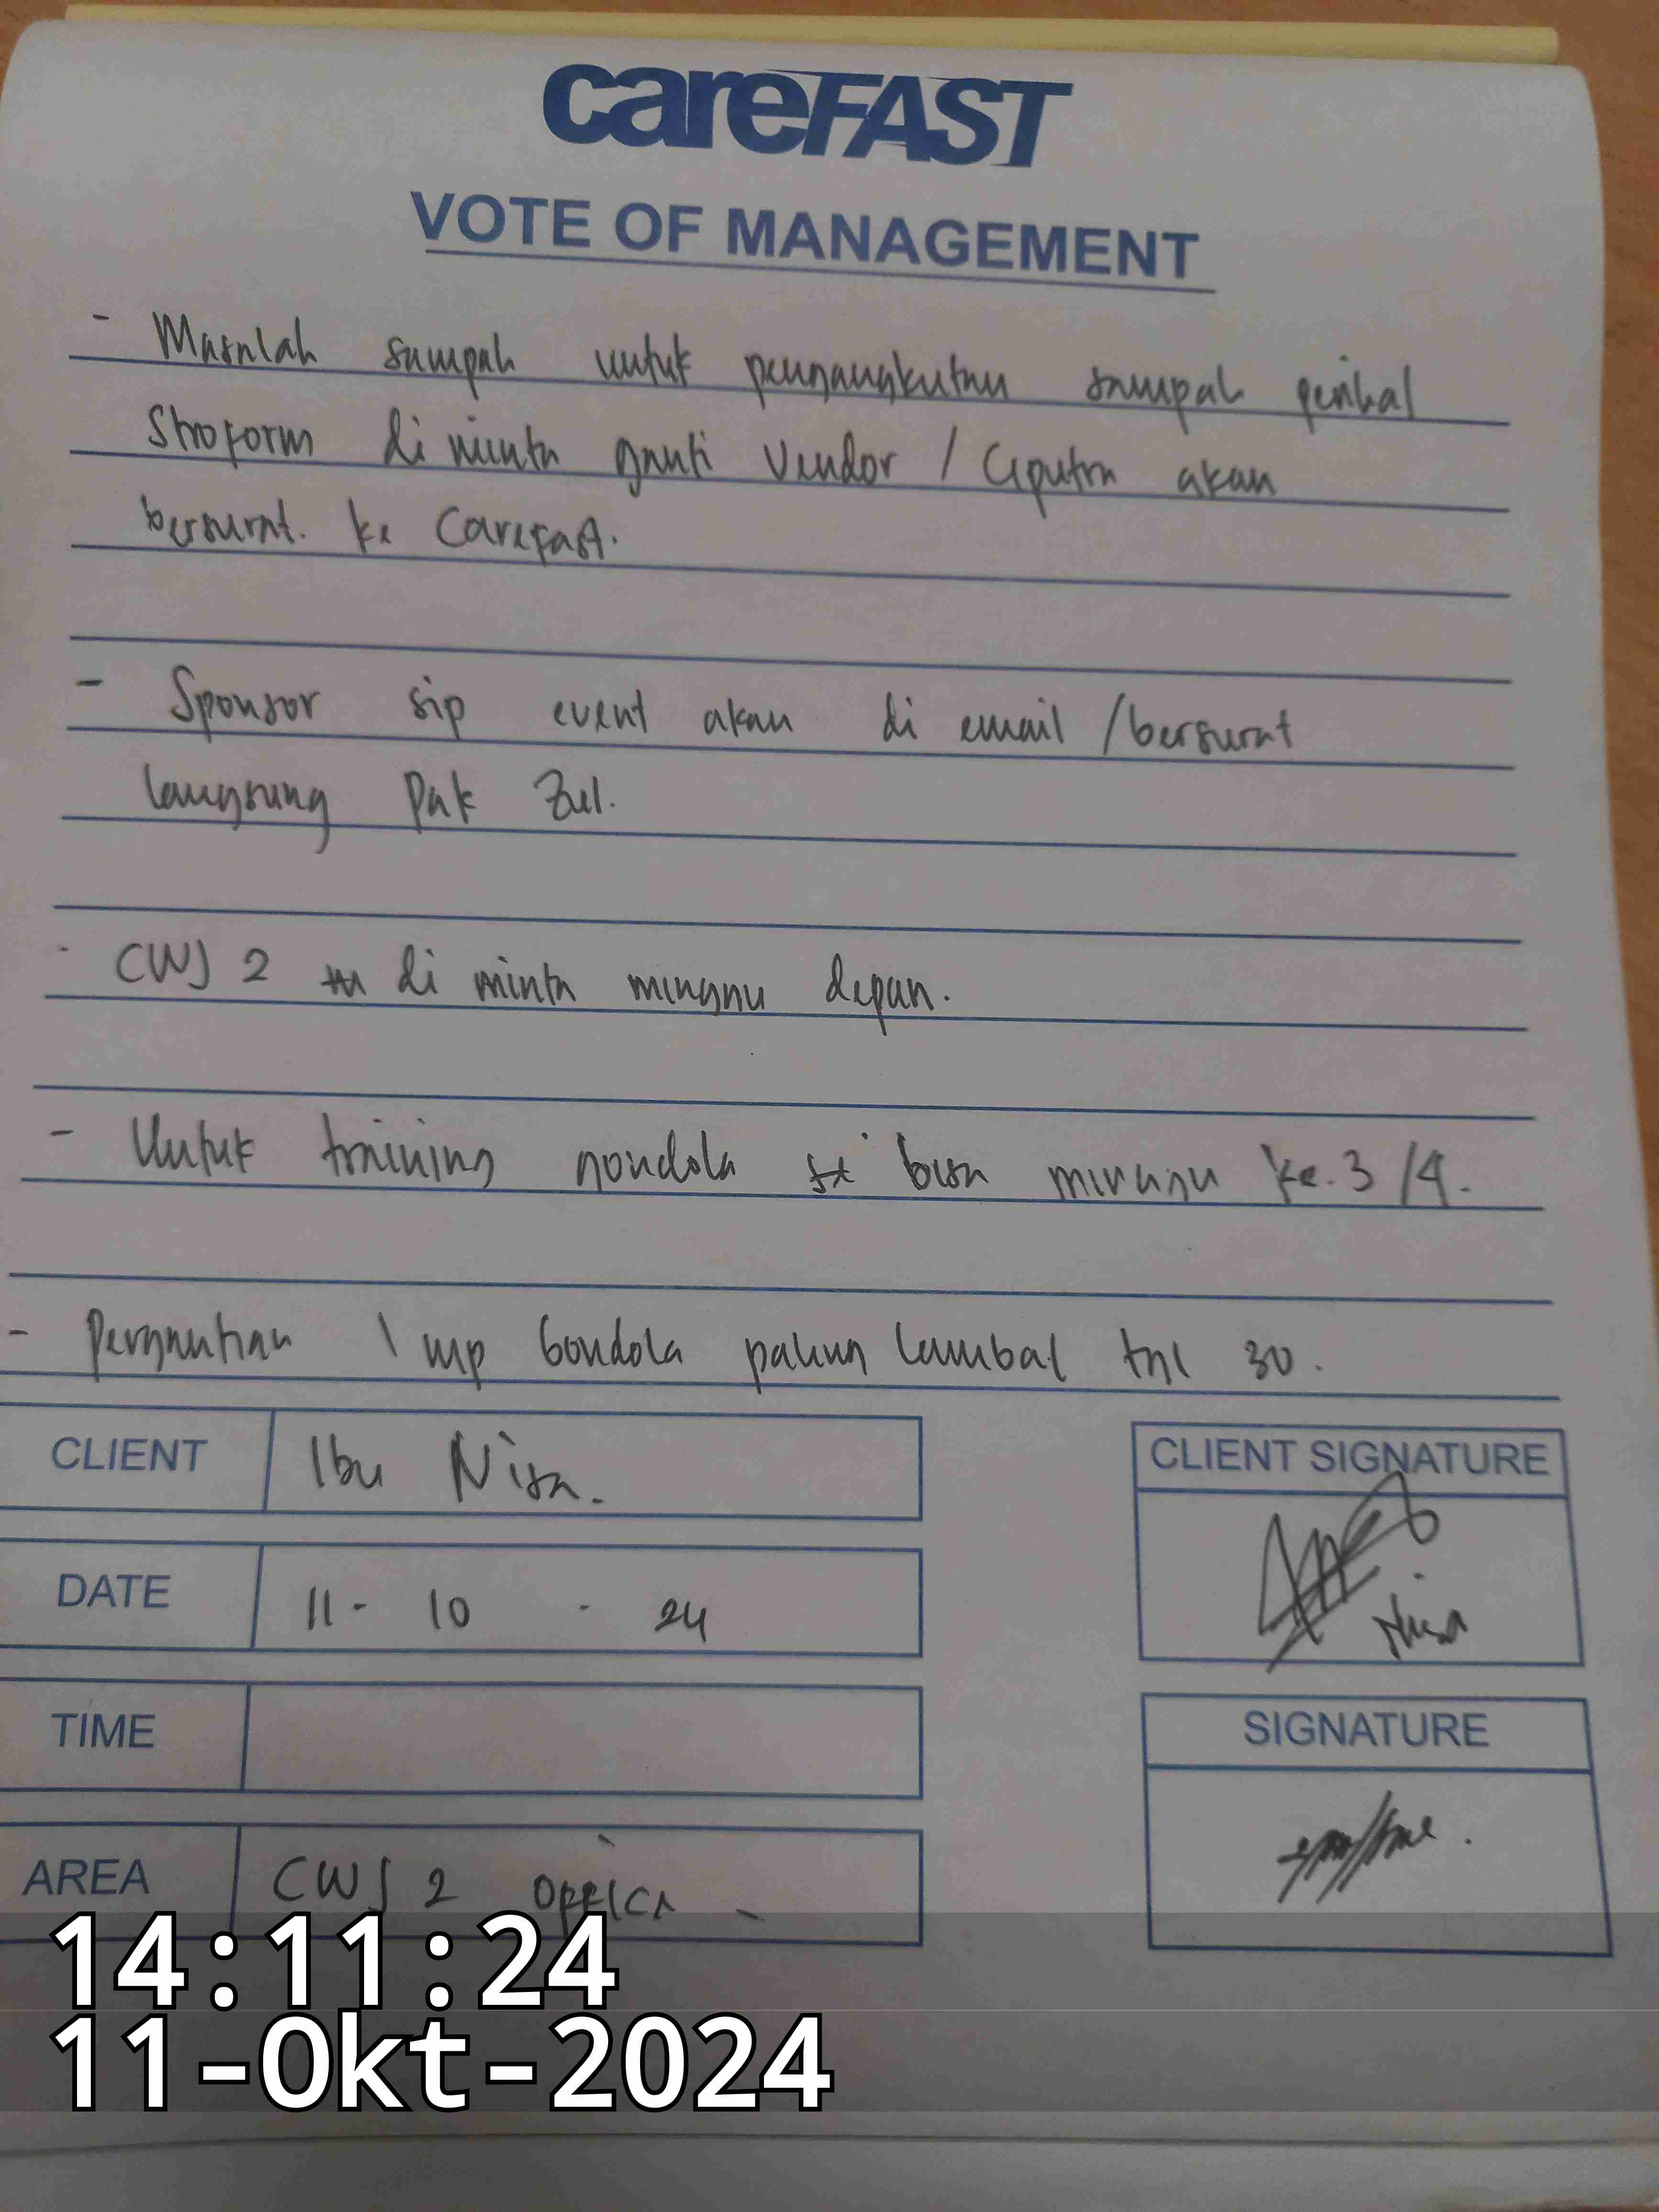 careFAST
VOTE OF MANAGEMENT
- Masalah sampah untuk pengangkutan sampah perihal
Stroform di minta ganti Vendor / Ciputra akan
bersurat. ke Carefast.
- Sponsor sip event akan di email / bersurat
langsung Pak Zul.
- CWJ 2 di minta minggu depan.
- Untuk training gondola bisa minggu ke. 3 / 4.
- Pergantian 1 mp Gondola paling lambat tgl 30.
CLIENT Ibu Nisa.
CLIENT SIGNATURE
Nisa
DATE 11 - 10 - 24
TIME
SIGNATURE
AREA CWJ 2 Office -
14:11:24
11-Okt-2024